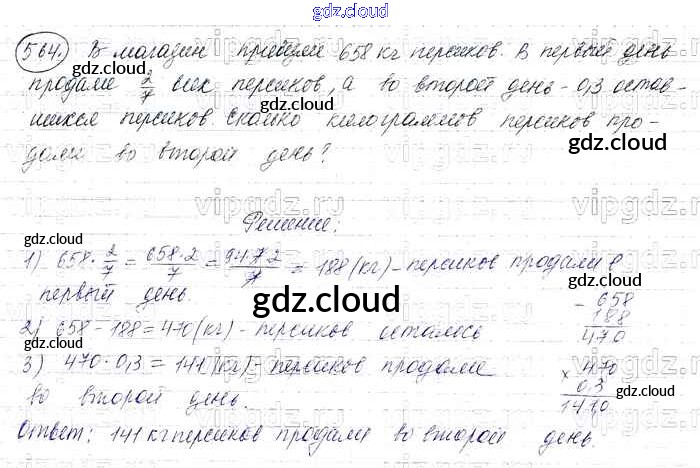 gdz.cloud
564. В магазин прибыли 658 кг персиков. В первый день
gdz.cloud
продали 2/7 всех персиков, а во второй день - 0,3 остав-
gdz.cloud
шихся персиков. Сколько килограммов персиков про-
gdz.cloud
дали во второй день?
vipgdz.ru
Решение:
gdz.cloud
1) 658 · 2/7 = 658·2/7 = 94·7·2/7 = 188 (кг) - персиков продали в
первый день.
gdz.cloud
- 658
188
470
2) 658 - 188 = 470 (кг) - персиков осталось
gdz.cloud
3) 470 · 0,3 = 141 (кг) - персиков продали
во второй день.
× 470
0,3
141,0
gdz.cloud
gdz.cloud
Ответ: 141 кг персиков продали во второй день.
gdz.cloud